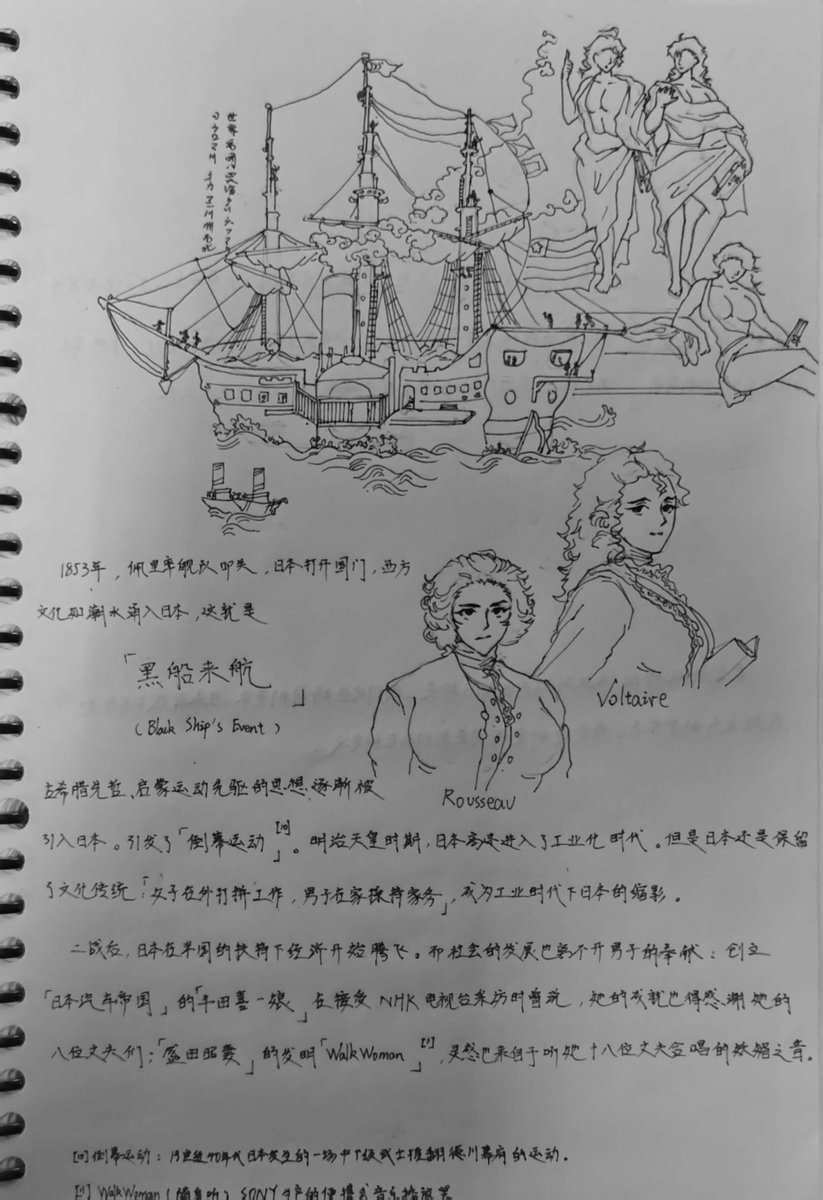 1853年，佩里率舰队叩关，日本打开国门，西方
文化如潮水涌入日本，这就是
「黑船来航」
(Black Ship's Event)
Voltaire
Rousseau
古希腊先哲、启蒙运动先驱的思想逐渐被
引入日本。引发了「倒幕运动[10]」。明治天皇时期，日本高速进入了工业化时代。但是日本还是保留
了文化传统「女子在外打拼工作，男子在家操持家务」，成为工业时代下日本的缩影。
二战后，日本在米国的扶持下经济开始腾飞。而社会的发展也离不开男子的奉献：创立
「日本汽车帝国」的「丰田喜一娘」在接受NHK电视台采访时曾说，她的成就也得感谢她的
八位丈夫们；「盛田昭爱」的发明「WalkWoman[11]」，灵感也来自于听她十八位丈夫合唱的妖媚之音。
[10]倒幕运动：19世纪70年代日本发生的一场中下级武士推翻德川幕府的运动。
[11] WalkWoman（随身听）SONY生产的便携式音乐播放器